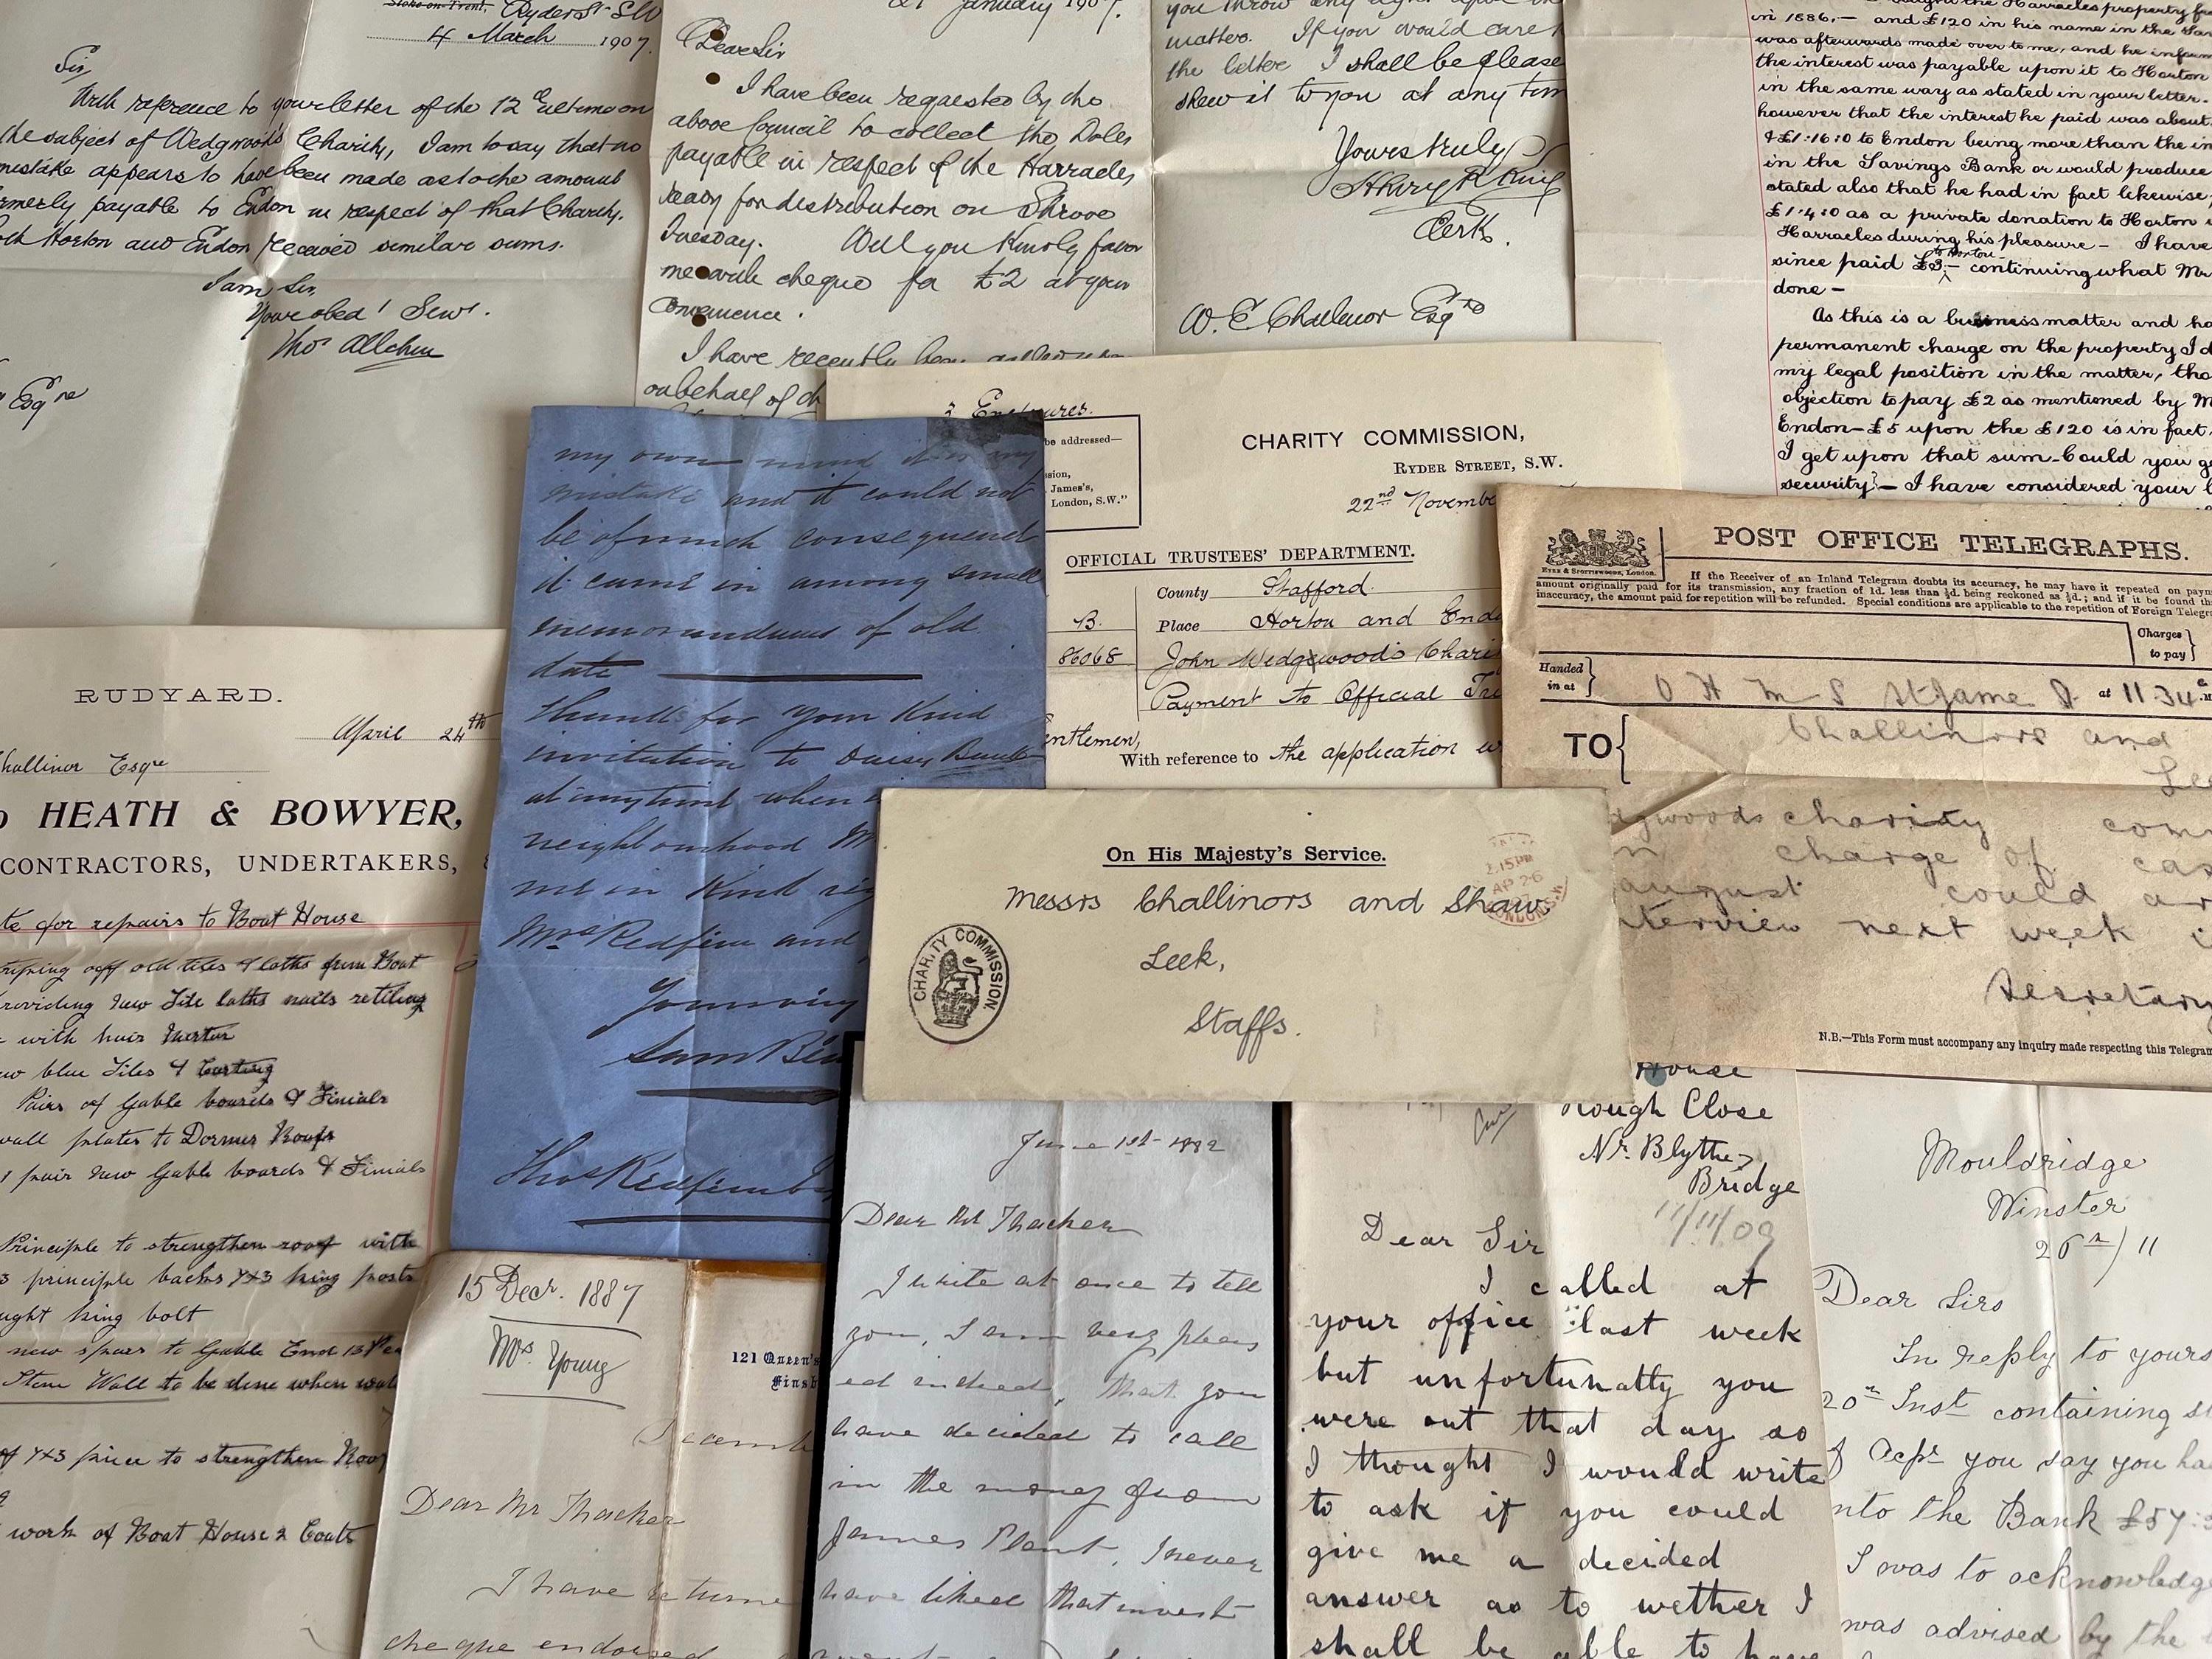 Stoke-on-Trent, Ryder St. S.W
4 March 1907.
Sir,
With reference to your letter of the 12th ultimo on
the subject of Wedgwood's Charity, I am to say that no
mistake appears to have been made as to the amount
formerly payable to Endon in respect of that Charity.
Both Horton and Endon received similar sums.
I am Sir,
Your obedt Servt.
Thos Allchin
Esqre
January 1907.
Dear Sir
I have been requested by the
above Council to collect the Doles
payable in respect of the Harracles
ready for distribution on Shrove
Tuesday. Will you kindly favor
me with cheque for £2 at your
convenience.
I have recently been called upon
on behalf of
you throw any light upon the
matter. If you would care
the letter I shall be please
shew it to you at any tim
Yours truly
Clerk.
W. E. Challinor Esqre
the Harracles property
in 1886,— and £120 in his name in the Sav
was afterwards made over to me, and he inform
the interest was payable upon it to Horton
in the same way as stated in your letter.
however that the interest he paid was about
& £1.16.0 to Endon being more than the in
in the Savings Bank or would produce
stated also that he had in fact likewise
£1.4.0 as a private donation to Horton
Harracles during his pleasure— I have
to Horton
since paid £3— continuing what Mr
done—
As this is a business matter and ha
permanent charge on the property I d
my legal position in the matter, tho
objection to pay £2 as mentioned by M
Endon—£5 upon the £120 is in fact
I get upon that sum. Could you g
security?— I have considered your l
3 Enclosures.
be addressed—
ssion,
James's,
London, S.W."
CHARITY COMMISSION,
RYDER STREET, S.W.
22nd Novembe
OFFICIAL TRUSTEES' DEPARTMENT.
County Stafford.
B.
Place Horton and Endo
86068
John Wedgwood's Chari
Payment to Official Tru
entlemen,
With reference to the application w
POST OFFICE TELEGRAPHS.
EYRE & SPOTTISWOODE, LONDON.
If the Receiver of an Inland Telegram doubts its accuracy, he may have it repeated on paym
amount originally paid for its transmission, any fraction of 1d. less than ½d. being reckoned as ½d.; and if it be found th
inaccuracy, the amount paid for repetition will be refunded. Special conditions are applicable to the repetition of Foreign Telegra
Charges
to pay
Handed
in at
O H M S St James St at 11.34
TO
Challinors and
Lee
dgwoods charity com
charge of cas
august could ar
nterview next week
Secretary
N.B.—This Form must accompany any inquiry made respecting this Telegram
my own mind it is my
mistake and it could not
be of much consequence
it came in among small
memorandums of old
date
thanks for your kind
invitation to Daisy Bank
at any time when
neighbourhood M
me in kind
Mrs Redfern and
Yours very
Thos Redfern
RUDYARD.
April 24th
Challinor Esqre
HEATH & BOWYER,
CONTRACTORS, UNDERTAKERS, &
te for repairs to Boat House
ripping off old tiles & laths from Boat
roviding new Tile laths nails retiling
with hair Mortar
ew blue Tiles & Carting
Pairs of Gable boards & Finials
wall plates to Dormer Roofs
1 pair new Gable boards & Finials
Principle to strengthen roof with
3 principle backs 7x3 king posts
ught king bolt
new spars to Gable End
Stone Wall to be done when
of 7x3 to strengthen Roof
work of Boat House & Boats
On His Majesty's Service.
2.15PM
AP 26
LONDON. S.W.
Messrs Challinors and Shaw
Leek,
Staffs.
CHARITY COMMISSION.
15 Decr. 1887
Mrs Young
121 Queen's
Finsb
Decemb
Dear Mr Thacker
I have returne
cheque endorsed
June 1st 1882
Dear Mr Thacker
I write at once to tell
you, I am very pleas
ed indeed, that you
have decided to call
in the money from
James Plant, I never
have liked that invest
House
Rough Close
Nr. Blythe
Bridge
11/11/09
Dear Sir
I called at
your office last week
but unfortunatly you
were out that day so
I thought I would write
to ask if you could
give me a decided
answer as to wether I
shall be able to have
Mouldridge
Winster
26th/11
Dear Sirs
In reply to yours
20th Inst containing st
of Acpt you say you ha
nto the Bank £57
I was to acknowledge
was advised by the